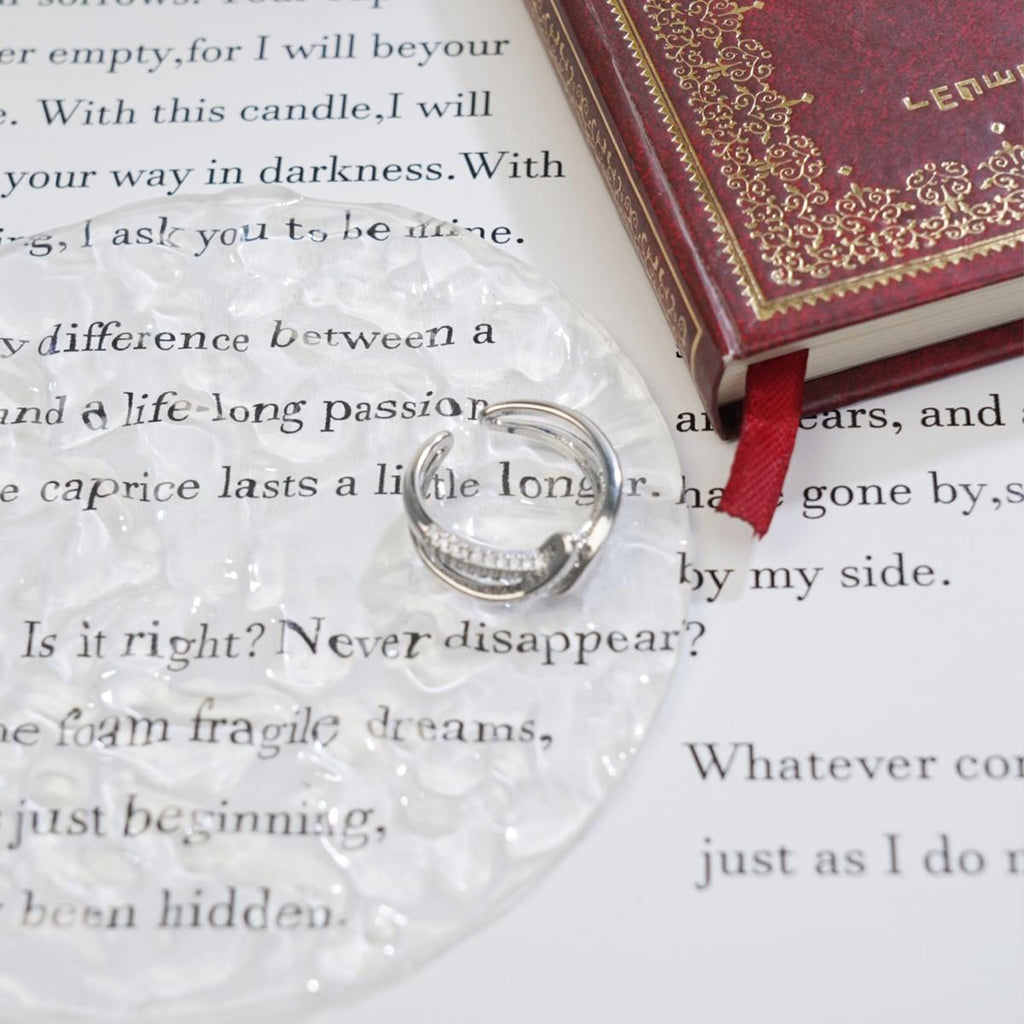 sorrows. Your cup
er empty,for I will beyour
e. With this candle,I will
your way in darkness.With
ng, I ask you to be mine.
y difference between a
and a life-long passion
e caprice lasts a little longer.
Is it right? Never disappear?
he foam fragile dreams,
just beginning,
been hidden.
ears, and
gone by,s
by my side.
Whatever co
just as I do